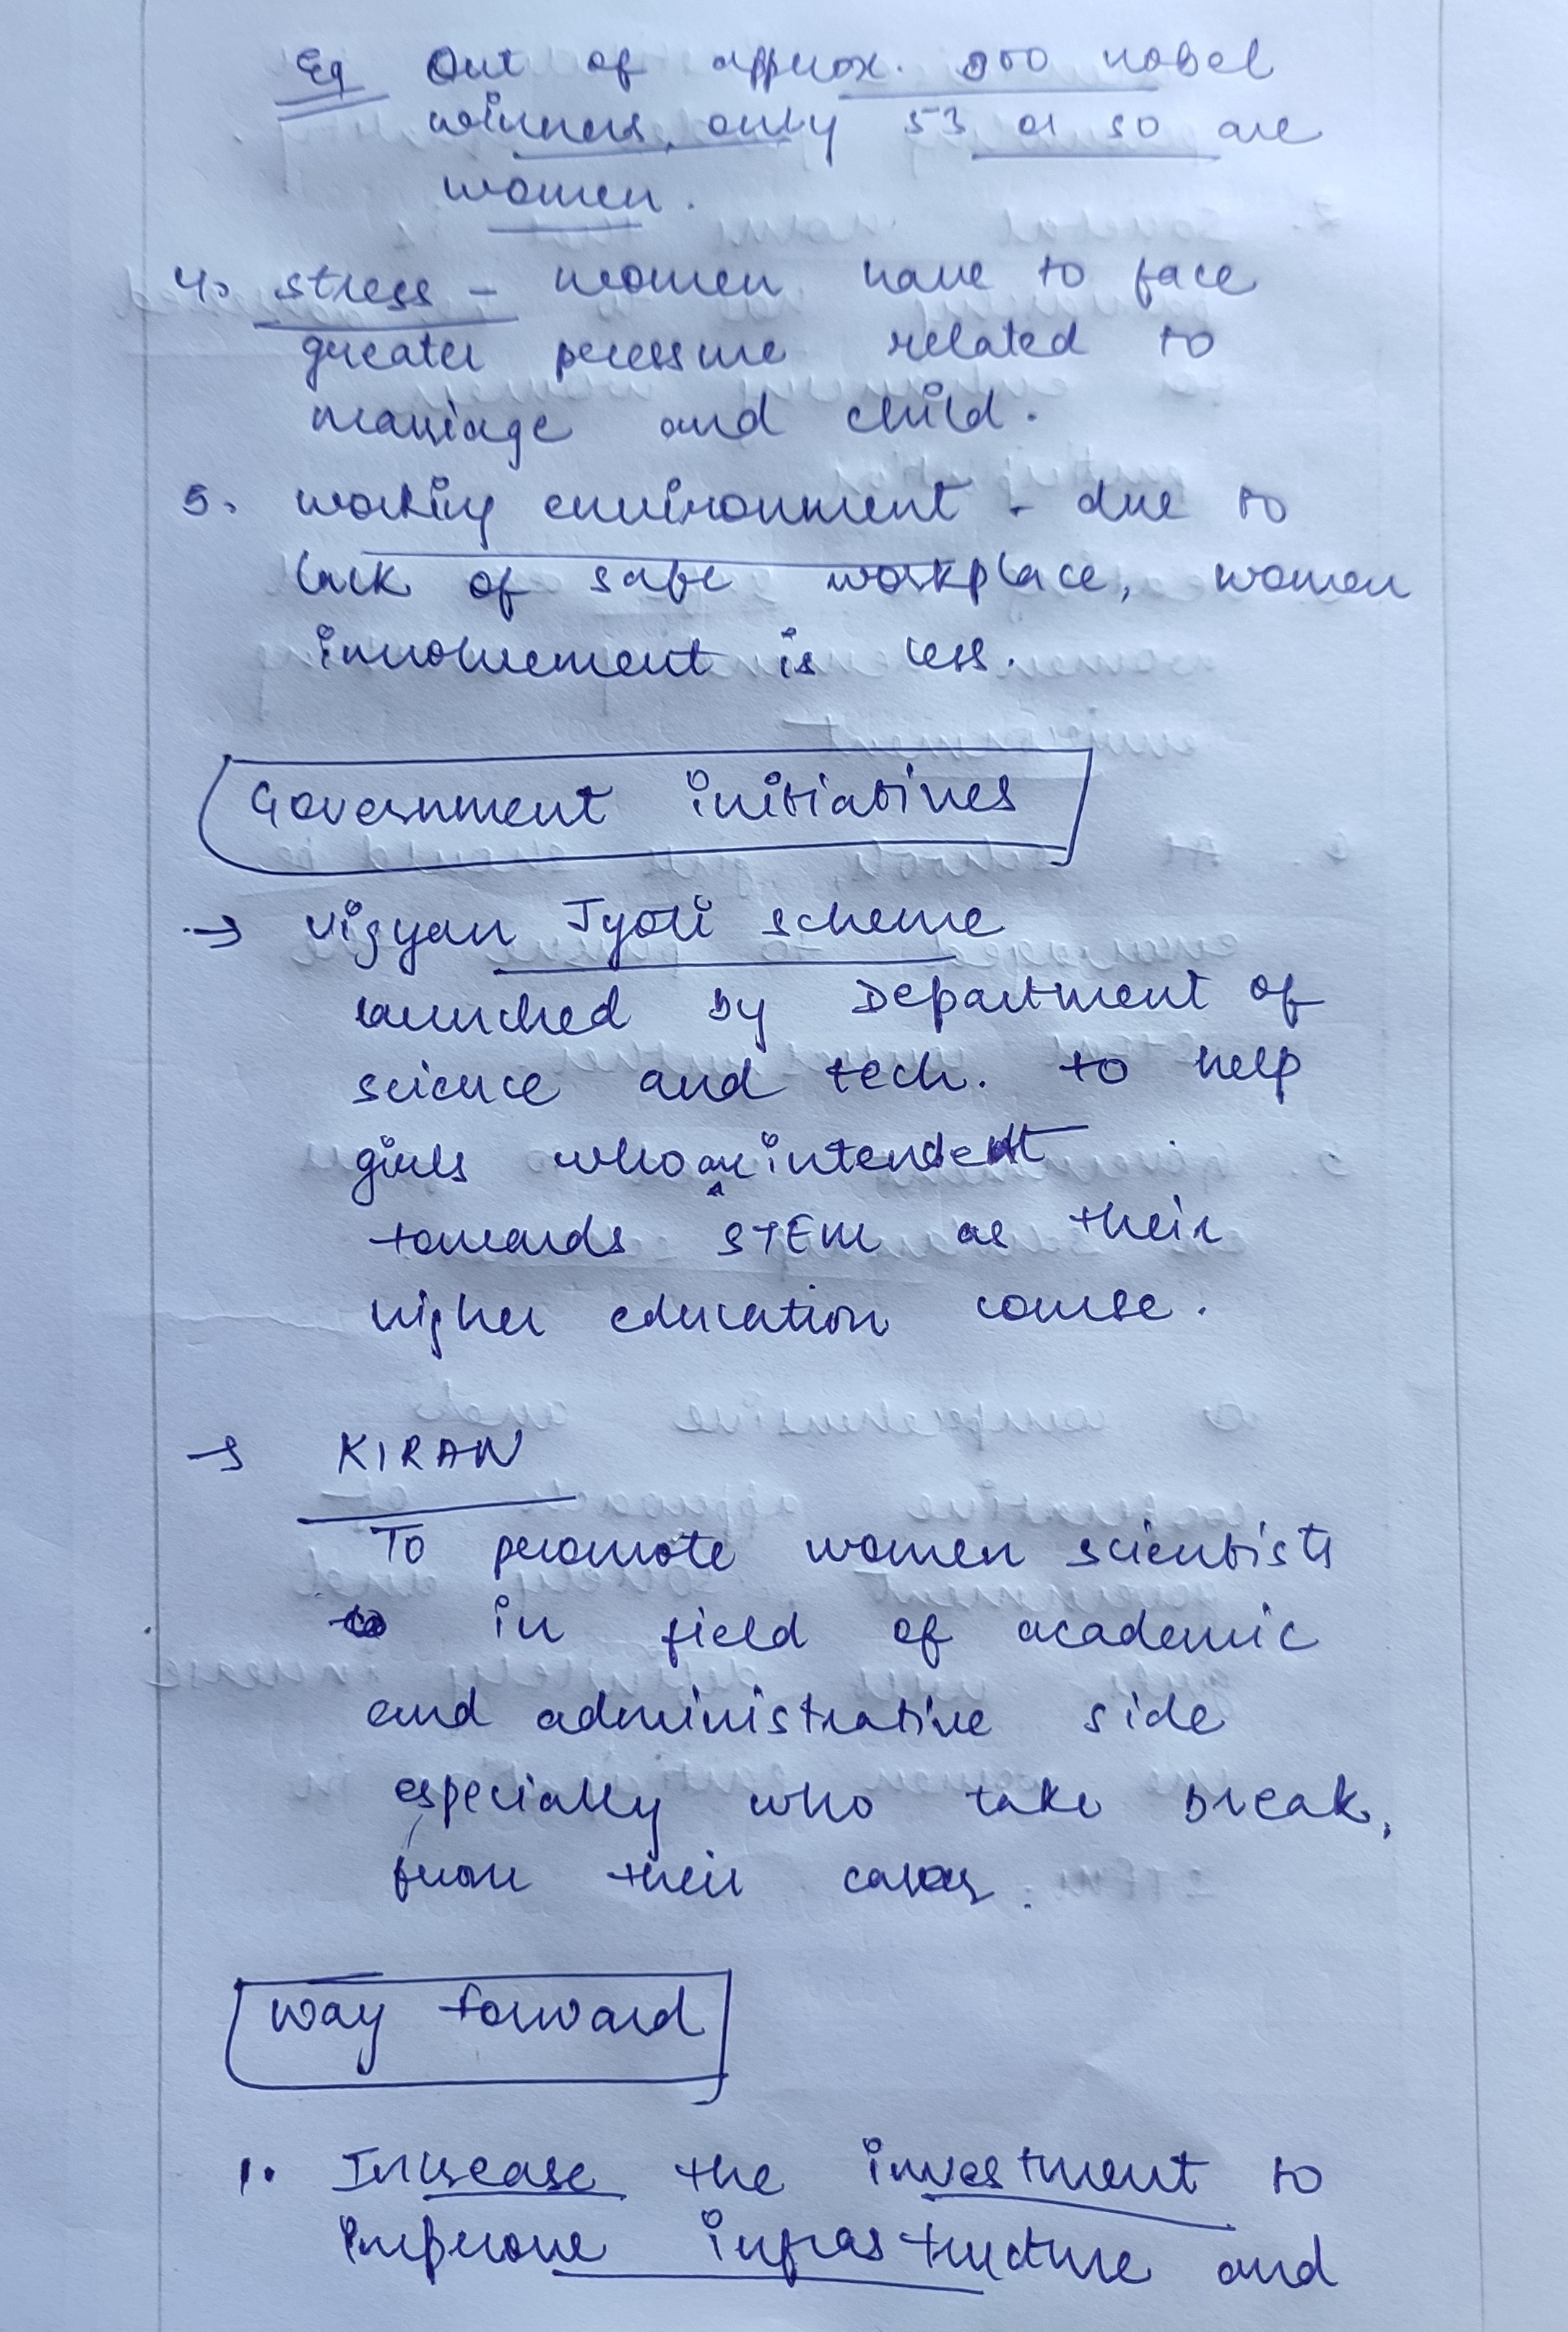 Eg Out of approx. 900 nobel
winners, only 53 or so are
women.
4. stress - women have to face
greater pressure related to
marriage and child.
5. working environment - due to
lack of safe workplace, women
involvement is less.
Government initiatives
→ Vigyan Jyoti scheme
launched by Department of
science and tech. to help
girls who are intended
towards STEM as their
higher education course.
→ KIRAN
To promote women scientists
in field of academic
and administrative side
especially who take break,
from their
way forward
1. Increase the investment to
improve infrastructure and